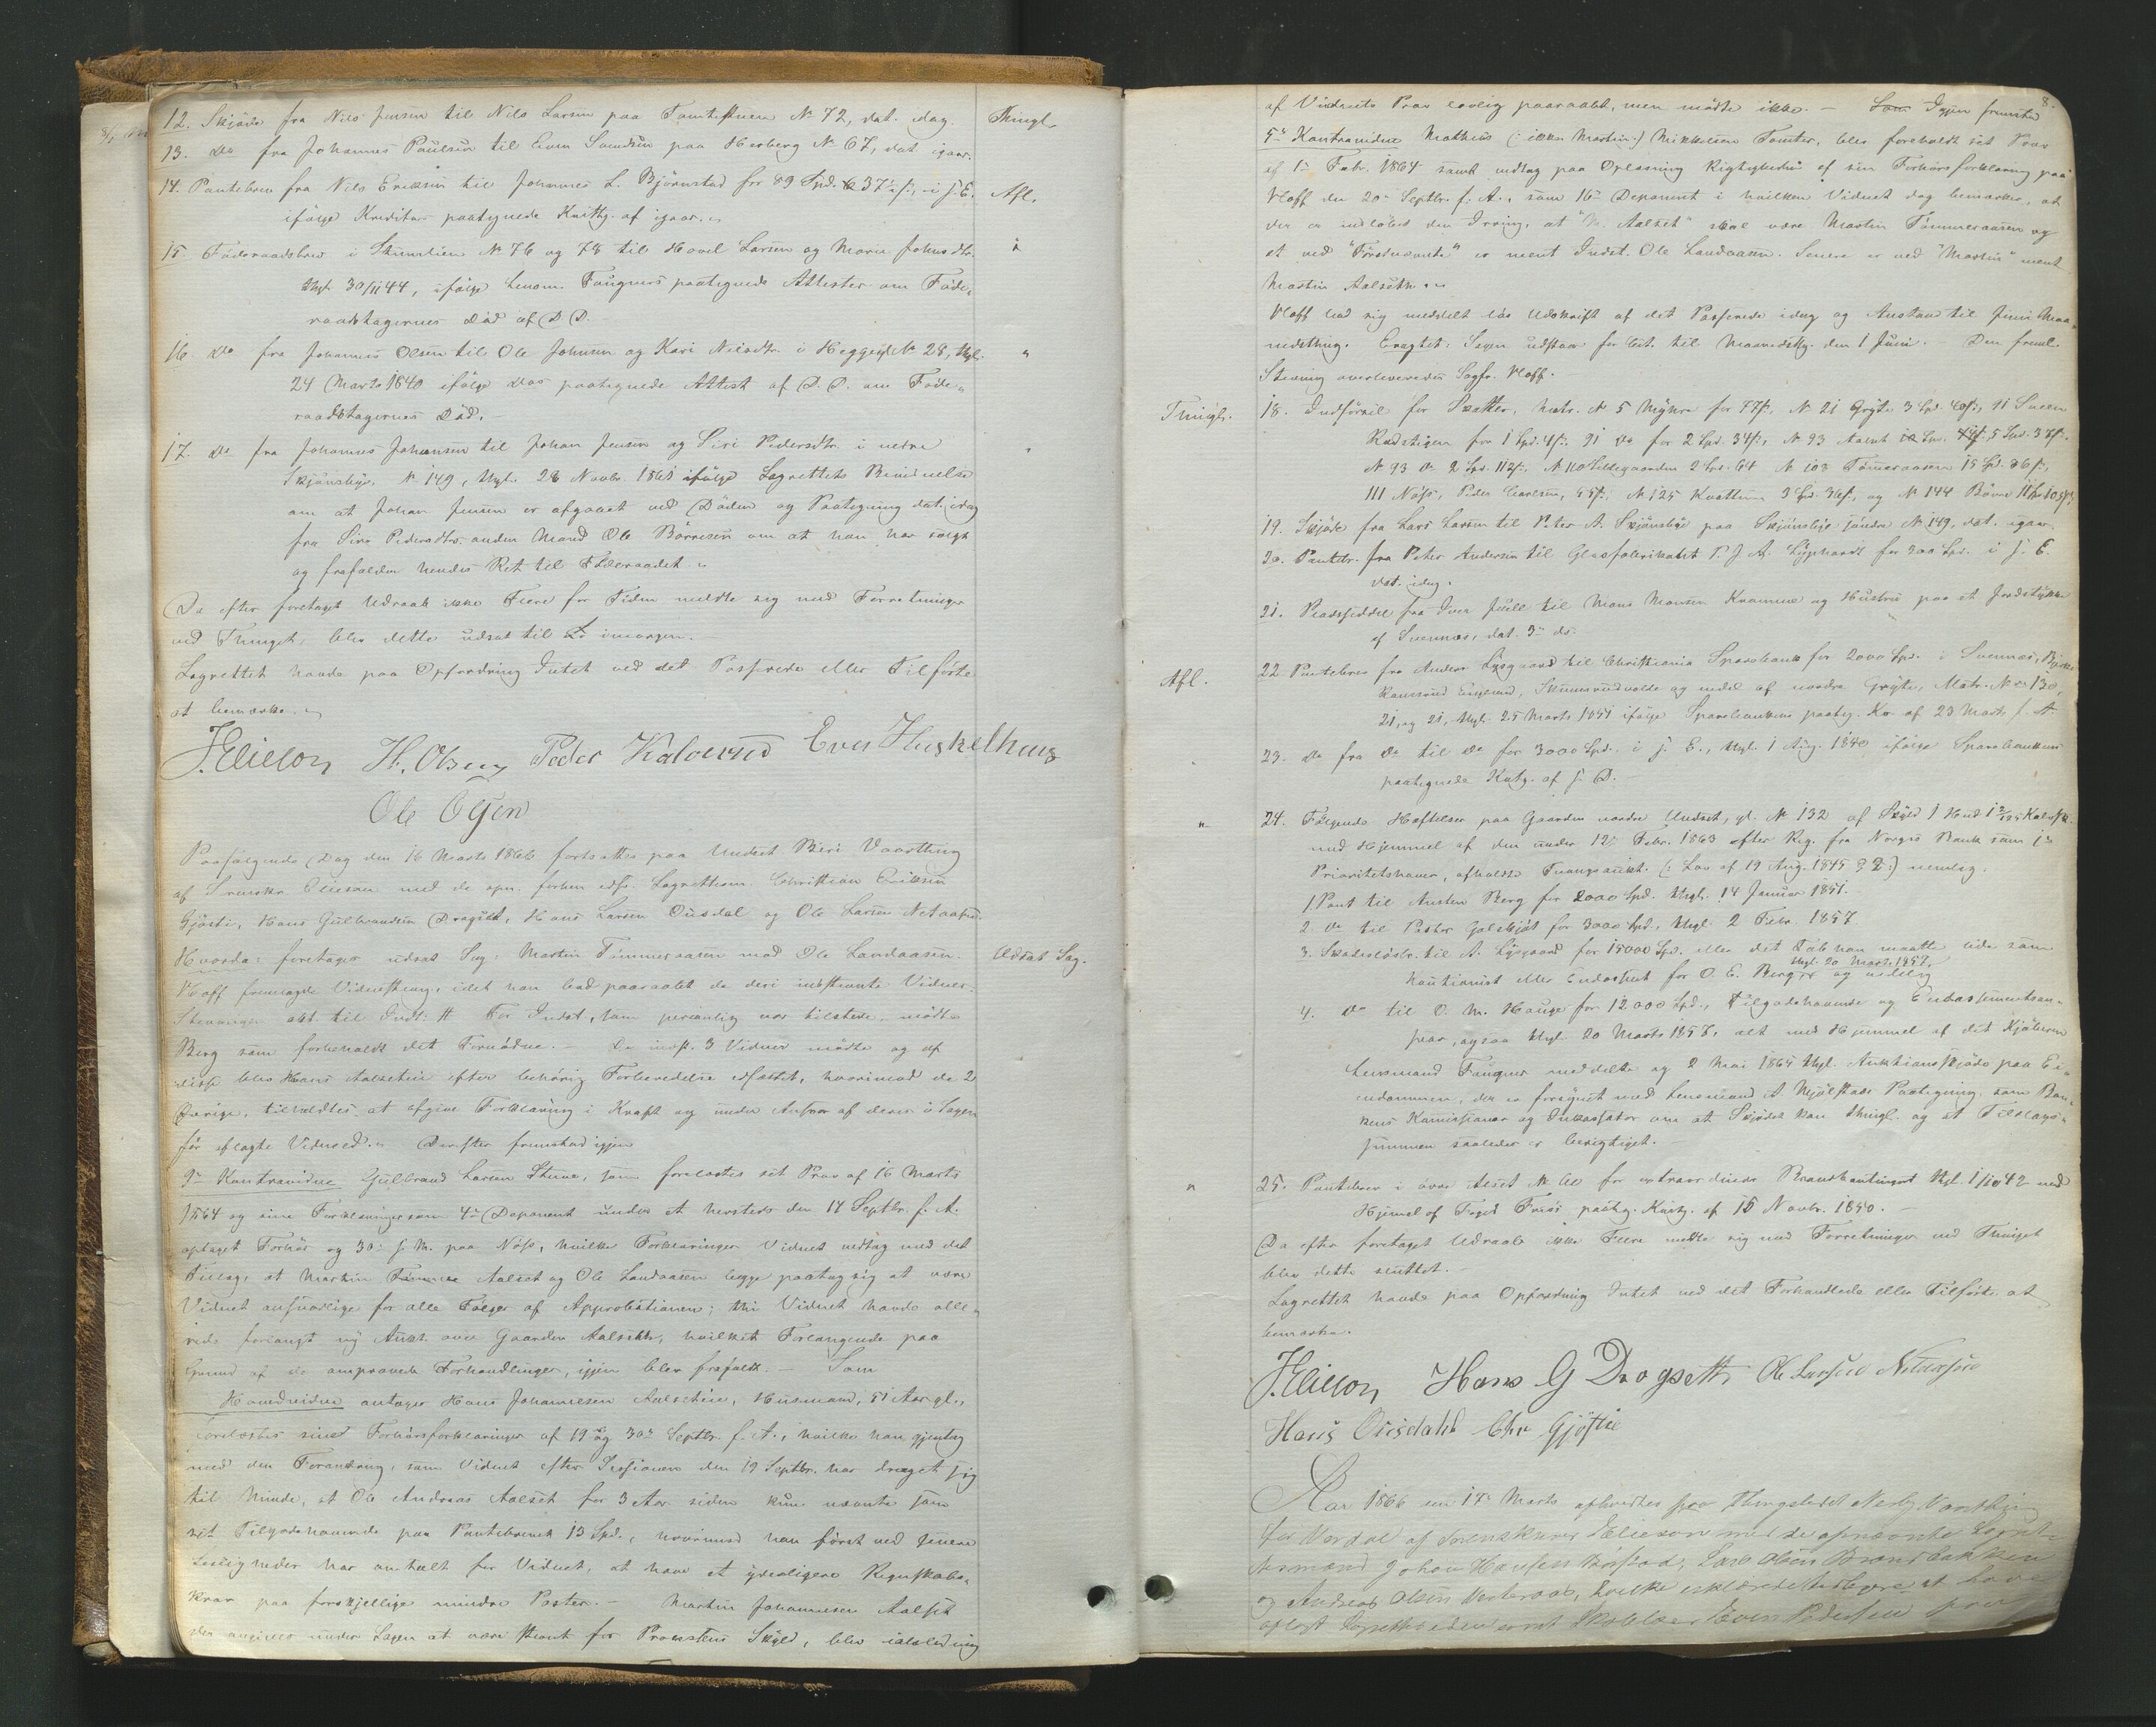 12. Skjøde fra Nils Jensen til Nils Larsen paa Tomtestuen No 72, dat. idag. Thingl.
13. do fra Johannes Paulsen til Even Samdsen paa Hesberg No 67, dat. igaar.
14. Pantebrev fra Nils Eriksen til Johannes L. Bjørnstad for 89 Spd. 37 ß, i s. E. Afl.
ifølge Kreditors paategnede Kvittg. af igaar.
15. Føderaadsbrev i Skumlien No 76 og 78 til Hovel Larsen og Marie Johnsdtr.
thgl. 30/11 44, ifølge Lensm. Faugners paategnede Attester om Føde-
raadstagernes Død af D.D.
16. do fra Johannes Olsen til Ole Johnsen og Kari Nilsdtr. i No 28, thgl.
24 Marts 1840 ifølge do's paategnede Attest af D.D. om Føde-
raadstagernes Død.
17. do fra Johannes Johansen til Johan Jensen og Siri Pedersdtr. i nedre
Skjønsby, No 149, thgl. 28 Novbr. 1861 ifølge Lagrettets Bevidnelse
om at Johan Jensen er afgaaet ved Døden og Paategning dat. idag
fra Siri Pedersdtrs. anden Mand Ole Børresen om at han har solgt
og frafalden hendes Ret til Føderaadet.
Da efter foretaget Udraab ikke Flere for Tiden meldte sig med Forretninger
ved Thinget, blev dette udsat til imorgen.
Lagrettet havde paa Opfordring Intet ved det Passerede eller Tilførte
at bemærke.
J. Elieson H. Olsen Peder Kalverud Even Huskelhuus
Ole Olsen
Paafølgende Dag den 16 Marts 1866 fortsattes paa Undset Biri Vaarthing
af Sorenskr. Elieson med de opn. forhen edsv. Lagrettesm. Christian Eriksen
Gjøsti, Hans Gulbrandsen Dragset, Hans Larsen Ousdal og Ole Larsen
Hvorda: foretages udsat Sag: Martin Tømmeraasen mod Ole Landaasen. Udsat Sag.
Hoff fremlagde Vidnestævng. idet han bad paaraabt de deri indstævnte Vidner.
Stevningen akt. til Indl: # For Indst., som personlig var tilstede, mødte
Berg som forbeholdt det Fornødne. De indst. 3 Vidner mødte og af
disse blev Hans Aalseteie efter behørig Forberedelse edfæstet, hvorimod de 2
Øvrige, tilholdtes at afgive Forklaring i Kraft og under Ansvar af deres i Sagen
før aflagte Vidneed. Derefter fremstod igjen
9de Kontravidne Gulbrand Larsen Stune, som forelæstes sit Prov af 16 Marts
1864 og sine Forklaringer som 4de Deponent under et Versteds den 14 Septbr. f. A.
optaget Forhør og 30: s. M. paa Nøss, hvilke Forklaringer Vidnet vedtog med det
Tillæg, at Martin Aalset og Ole Landaasen begge paatog sig at være
Vidnet ansvarlige for alle Følger af Approbationen; thi Vidnet havde alle-
rede forlangt ny Aukt. over Gaarden Aalseth, hvilket Forlangende paa
Grund af de omprovede Forhandlinger, igjen blev frafaldt. — Som
Hovedvidne antages Hans Johannesen Aalseteie, Husmand, 51 Aar gl.,
forelæstes sine Forhørsforklaringer af 19 og 30te Septbr. f. A., hvilke han gjentog
med den Forandring, som Vidnet efter Sessionen den 19 Septbr. har draget sig
til Minde, at Ole Andreas Aalset for 3 Aar siden kun nævnte som
sit Tilgodehavende paa Pantebrevet 13 Spd., hvorimod han først ved senere
Leiligheder har omtalt for Vidnet, at have et yderligere Regnskabs-
krav paa forskjellige mindre Poster. — Martin Johannesen Aalset
der angives under Sagen at være stævnt for Provstens Skyld, blev i Anledning
8.
af Vidnets Prov lovlig paaraabt, men mødte ikke. — Som Igjen fremstod
5te Kontravidne Mathias (: ikke Martin :) Mikkelsen Tomter, blev foreholdt sit Prov
af 1ste Febr. 1864 samt vedtog paa Oplæsning Rigtigheden af sin Forhørsforklaring paa
Hoff den 20de Septbr. f. A., som 16de Deponent i hvilken Vidnet dog bemærker, at
der er indløbet den Irring, at "M. Aalset" skal være Martin Tømmeraasen og
at ved "Førstnævnte" er ment Indst. Ole Landaasen. Senere er ved "Martin" ment
Martin Aalseth.
Hoff bad sig meddelt løs Udskrift af det Passerede idag og Anstand til Juni Maa-
nedsthing. Eragtet: Sagen udstaar for Cit. til Maanedsthg. den 1 Juni. — Den freml.
Stevning overleveredes Sagfr. Hoff.
Thingl. 18. Indførsel for Skatter, Matr. No 5 Myhre for 77 ß, No 21 Gryte 3 Spd. 40 ß, 91 Sveen
Rudstigen for 1 Spd. 4 ß, 91 do for 2 Spd. 34 ß, No 93 Aalset 5 Spd. 37 ß.
No 93 do 2 Spd. 112 ß. No 110 2 Spd. 64 No 108 Tømeraasen 15 Spd. 86 ß,
111 Nøss, Peder Carlsen, 55 ß, No 125 Kvættum 3 Spd. 36 ß, og No 144
19. Skjøde fra Lars Larsen til Peter A. Skjønsby paa Skjønsby søndre No 149, dat. igaar.
20. Pantebr. fra Peter Andersen til Glasfabrikabst. P. J. A. for 200 Spd. i s. E.
dat. idag.
21. Pladsseddel fra Iver Juell til Mons Monsen Kramme og Hustru paa et Jordstykke
af Svennæs, dat. 3de ds.
Afl. 22. Pantebrev fra Anders Lysgaard til Christiania Sparebank for 2000 Spd. i Svennæs,
Ramsrud Englund, Skumsrudvolde og endel af nordre Gryte, Matr. No 130,
21, og 21, thgl. 25 Marts 1851 ifølge Sparebankens paateg. Kv. af 23 Marts s. A.
23. do fra do til do for 3000 Spd. i s. E., thgl. 1 Aug. 1840 ifølge Sparebankens
paategnede Kvtg. af s. D.
24. Følgende Heftelser paa Gaarden nordre Undset, gl. No 132 af Skyld 1 Hud
med Hjemmel af den under 12te Febr. 1863 efter Req. fra Norges Bank som 1ste
Prioritetshaver, afholdte Tvangsaukt. (: Lov af 19 Aug. 1845 § 2 :) nemlig.
1. Pant til Austen Berg for 2000 Spd. thgl. 14 Januar 1851.
2. do til Pastor Galschjøt for 3000 Spd., thgl. 2 Febr. 1857
3. Skadesløsbr. til A. Lysgaard for 15000 Spd. eller det Tab han maatte lide som
thgl. 20 Marts 1857,
Kautionist eller Endossent for O. E. Berger og endelig
4. do til O. M. Hauge for 12000 Spd., Tilgodehavende og Endossementsan-
svar, ogsaa thgl. 20 Marts 1857, alt med Hjemmel af det Kjøberen
Lensmand Faugner meddelte og 2 Mai 1865 thgl. Auktionsskjøde paa Ei-
endommen, der er forsynet med Lensmand A. Mjølstads Paategning, som Ban-
kens Kommissionær og Inkassator om at Skjødet kan thingl. og at Tilslags-
summen saaledes er berigtiget. —
25. Pantebrev i øvre Alset No 60 for extraordinær Brandkontingent thgl. 1/10 42 med
Hjemel af Foged paateg. Kvitg. af 15 Novbr. 1850. —
Da efter foretaget Udraab ikke Flere meldte sig med Forretninger ved Thinget
blev dette sluttet. —
Lagrettet havde paa Opfordring Intet ved det Forhandlede eller Tilførte at
bemærke.
J. Elieson Hans G Dragseth Ole Larsen
Hans Ousdahl Chr Gjøstie
Aar 1866 den 17de Marts afholdtes paa Thingstedet Vaarthing
for Vardal af Sorenskriver Elieson med de opnævnte Lagret-
tesmænd Johan Hansen Lars Olsen Brændbakken
og Andreas Olsen hvilke erklærede tidligere at have
aflagt Lagrettseden samt Even Pedersen